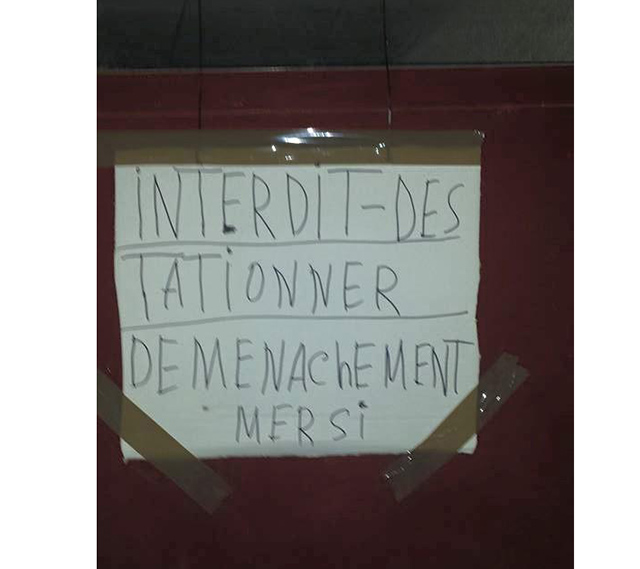 iNTERDiT-DES
TATiONNER
DEMENAChEMENT
MERSi